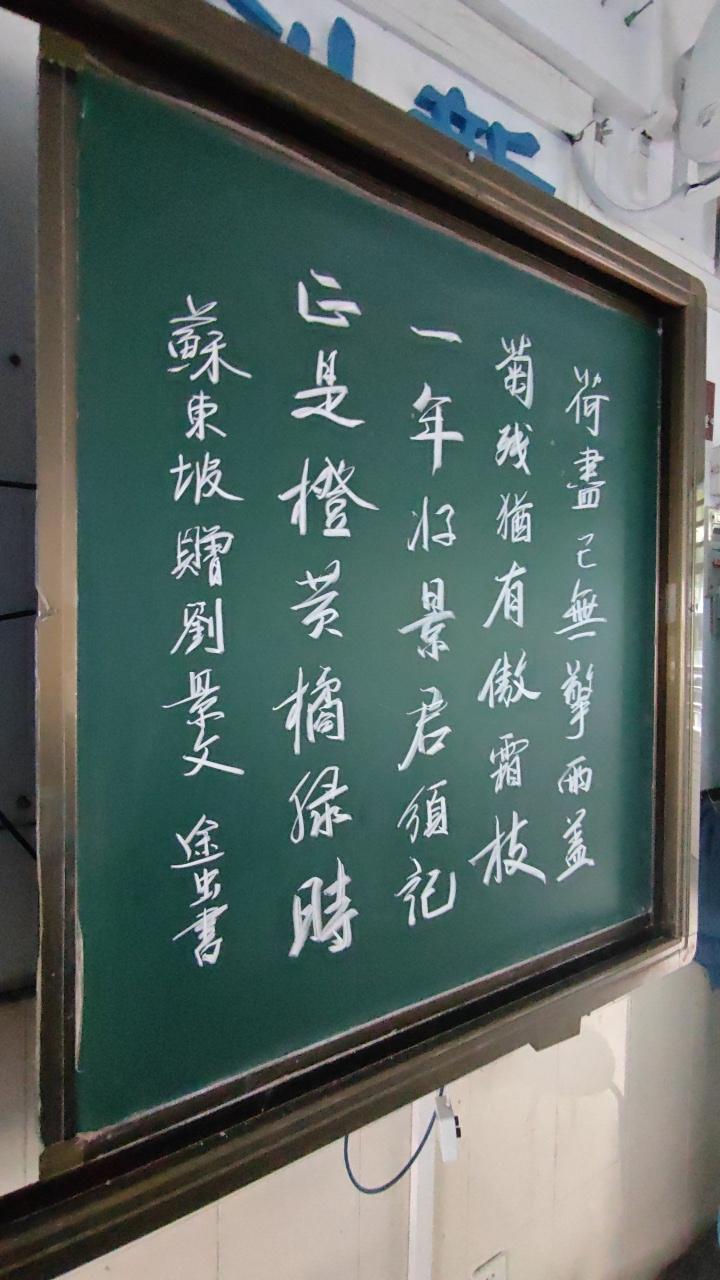 荷盡已無擎雨蓋
菊残猶有傲霜枝
一年好景君須記
正是橙黄橘緑時
蘇東坡贈劉景文 途虫書